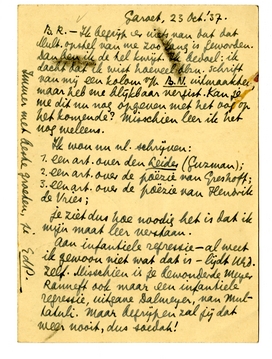 Garoet, 23 Oct. '37.
B.R. — Ik begrijp er niets van dat dat
Mult.-opstel van me zoo lang is geworden.
Dan ben ik de kl kwijt. Ik bedoel: ik
dacht dat ik wist hoeveel blzn. schrift
van mij een kolom v/h B.N. uitmaakten
maar heb me blijkbaar vergist. Kan je
me dit nu nog opgeven met het oog op
het komende? Misschien leer ik het
nog meteens.
Ik wou nu nl. schrijven:
1. een art. over den Leider (Guzman);
2. een art. over de poëzie van Greshoff;
3. een art. over de poëzie van Hendrik
de Vries;
Je ziet dus hoe noodig het is dat ik
mijn maat leer verstaan.
Aan infantiele regressie — al weet
ik gewoon niet wat dat is — lijdt
Misschien is je bewonderde Meyer
Ranneft ook maar een infantiele
regressie, uitgave Dalmeyer, van Mul-
tatuli. Maar begrijpen zal jij dat
weer nooit, dus soedah!
Immer met beste groeten, je EdP.